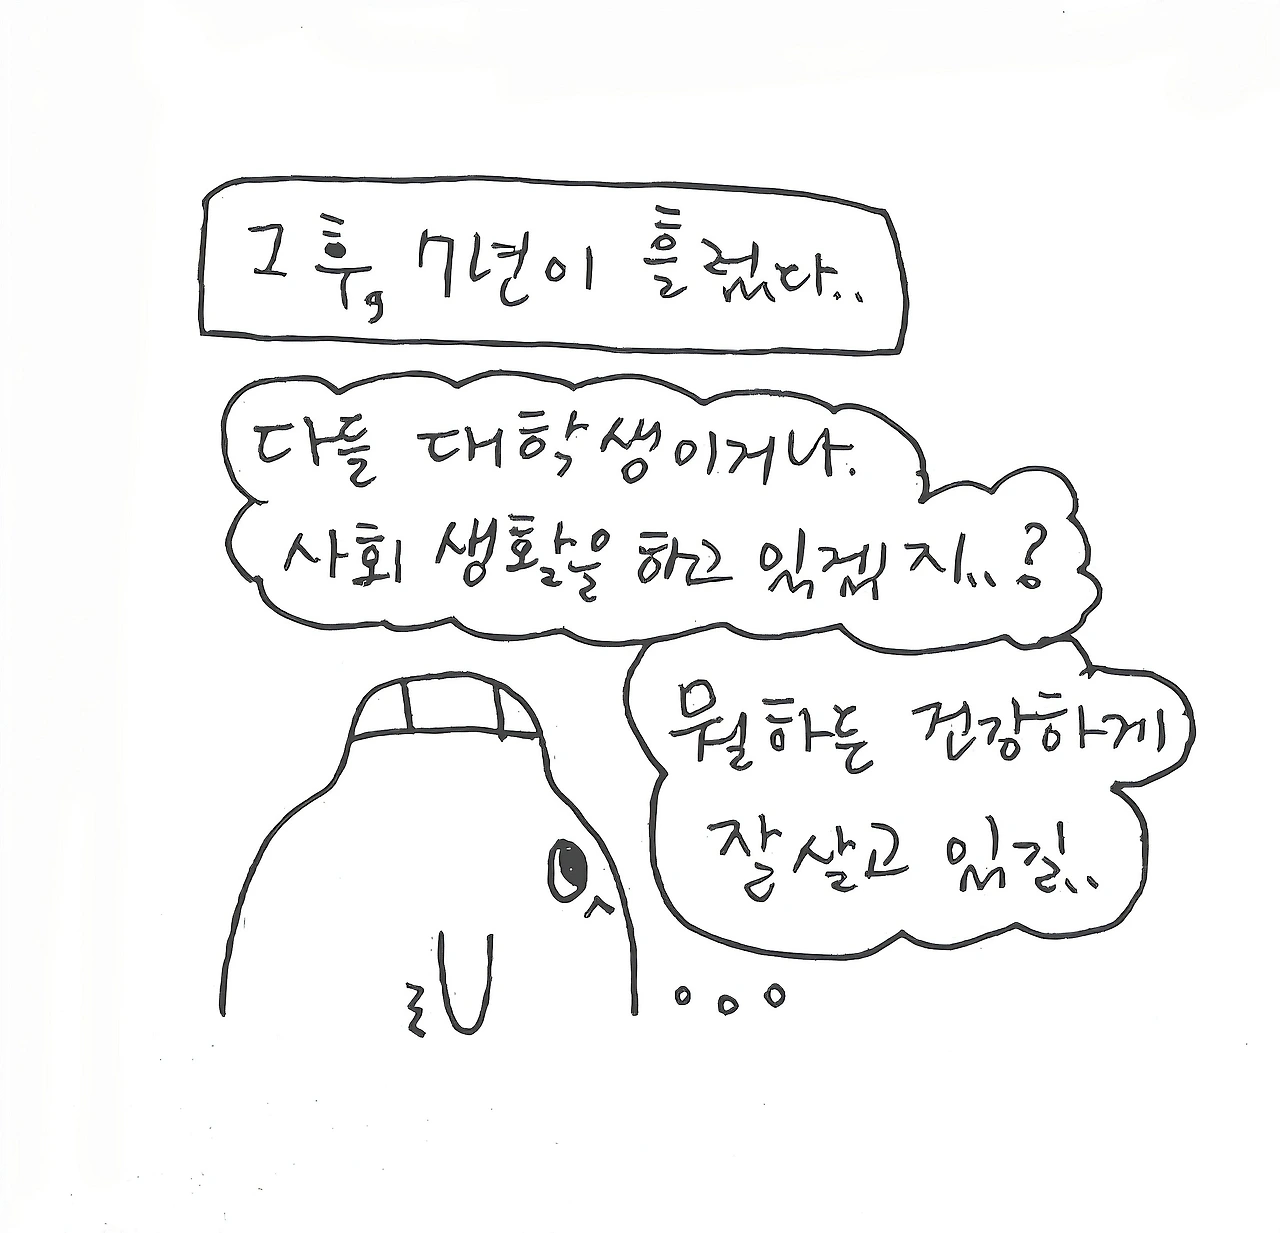 그 후, 7년이 흘렀다..
다들 대학생이거나.
사회 생활을 하고 있겠지..?
뭘하든 건강하게
잘살고 있길..